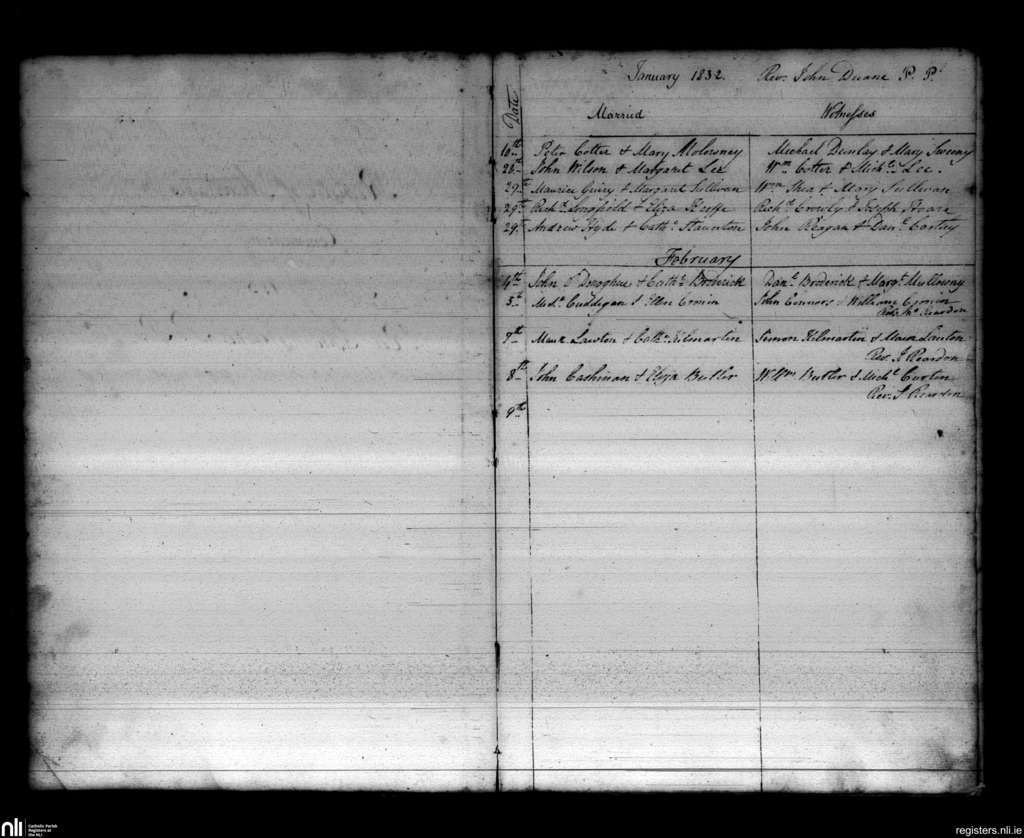 January 1832. Rev. John Duane P. P.
Date Married Witnesses
10th Peter Cotter & Mary Molowney Michael Dunlay & Mary Sweeny
26th John Wilson & Margaret Lee Wm Cotter & Michl Lee.
29th Maurice & Margaret Sullivan Wm Shea & Mary Sullivan
29th Richd Longfield & Eliza Keeffe Richd Crowly & Joseph Hoare
29th Andrew Hyde & Cathe Staunton John Reagan & Danl
February
4th John O Donoghue & Cathe Broderick Danl Broderick & Margt Mullowny
5th Michl Cuddigan & Ellen Cronin John Connors & William Cronin
Reardon
7th Maur Lawton & Cathe Kilmartin Simon Kilmartin & Maur Lawton
Rev. J Reardon
8th John Cashman & Eliza Butler Wm Butler & Michl Curtin
Rev. J Reardon
9th
nli
Catholic Parish
Registers at
the NLI
registers.nli.ie